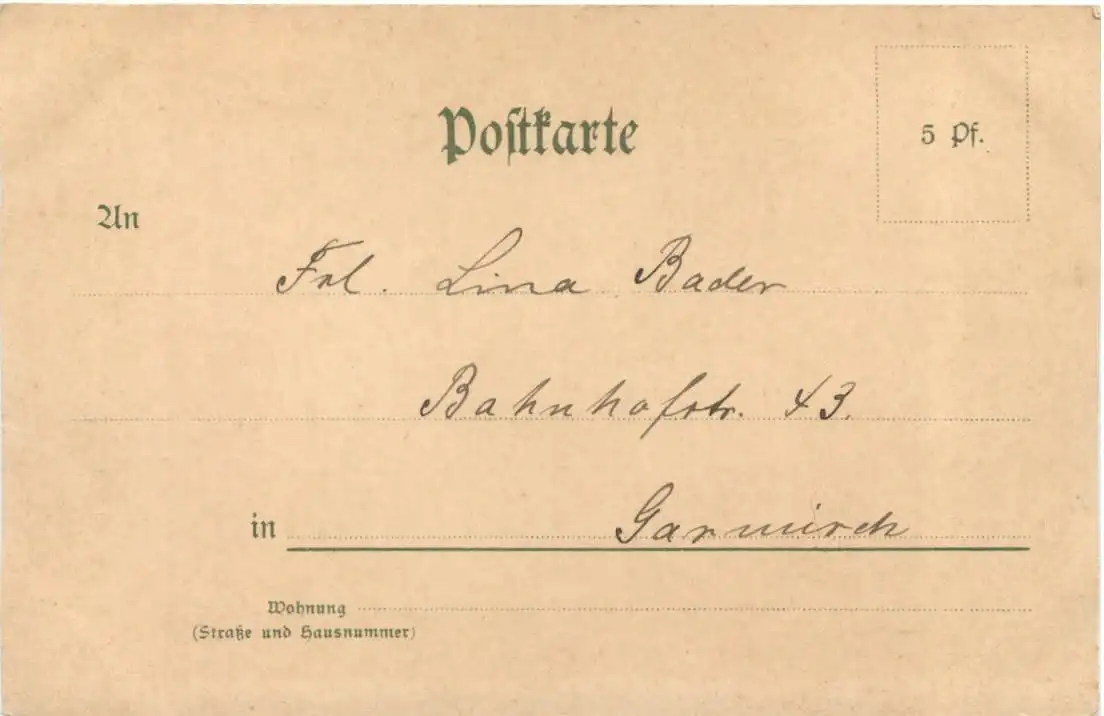 Postkarte
5 Pf.
An
Frl. Lina Bader
Bahnhofstr. 43.
in Garmisch
Wohnung
(Straße und Hausnummer)